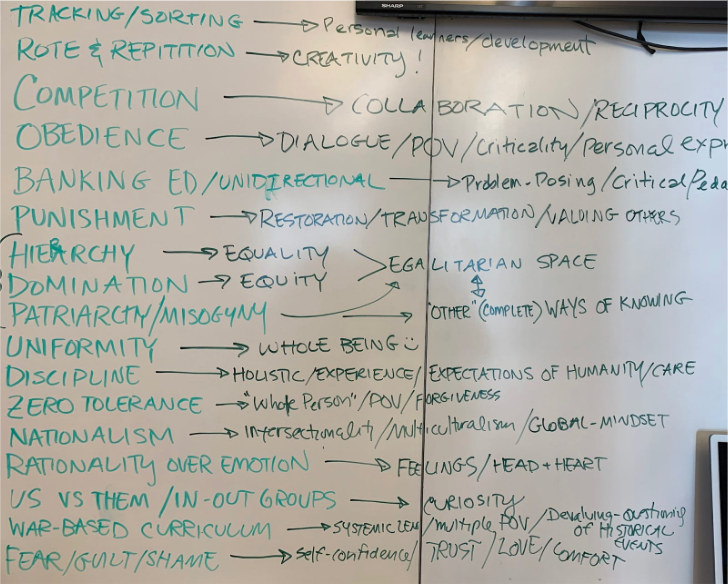 SHARP
TRACKING/SORTING → Personal learners/development
ROTE & REPITITION → CREATIVITY!
COMPETITION → COLLABORATION/RECIPROCITY
OBEDIENCE → DIALOGUE/POV/Criticality/Personal expr
BANKING ED/UNIDIRECTIONAL → Problem-Posing/Critical Peda
PUNISHMENT → RESTORATION/TRANSFORMATION/VALUING OTHERS
HIERARCHY → EQUALITY
DOMINATION → EQUITY > EGALITARIAN SPACE
PATRIARCHY/MISOGYNY → "OTHER" (COMPLETE) WAYS OF KNOWING
UNIFORMITY → WHOLE BEING
DISCIPLINE → HOLISTIC/EXPERIENCE/EXPECTATIONS OF HUMANITY/CARE
ZERO TOLERANCE → "Whole Person"/POV/FORGIVENESS
NATIONALISM → Intersectionality/Multiculturalism/GLOBAL-MINDSET
RATIONALITY OVER EMOTION → FEELINGS/HEAD + HEART
US VS THEM/IN-OUT GROUPS → CURIOSITY
WAR-BASED CURRICULUM → SYSTEMIC LENS/multiple POV/Devaluing-questioning OF HISTORICAL EVENTS
FEAR/GUILT/SHAME → Self-confidence/TRUST/LOVE/COMFORT